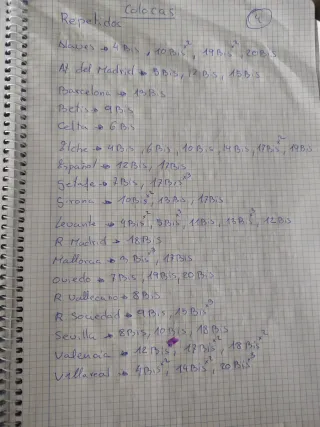 Colocas
Repetidos
4
Alaves → 4Bis, 10Bis x2, 19Bis x2, 20Bis
At. del Madrid → 9Bis, Bis, 15Bis
Barcelona → 15Bis
Betis → 9Bis
Celta → 6Bis
Elche → 4Bis, 6Bis, 10Bis, 14Bis, 17Bis x2, 19Bis
Español → 12Bis, 17Bis
Getafe → 7Bis, 17Bis
Girona → 10Bis, 13Bis, 17Bis
Levante → 4Bis x2, Bis, 11Bis, 13Bis, 12Bis
R Madrid → 18Bis
Mallorca → Bis, 17Bis
Oviedo → 7Bis, 19Bis, 20Bis
R Vallecano → 8Bis
R Sociedad → 9Bis, 15Bis
Sevilla → 8Bis, 10Bis, 18Bis
Valencia → 12Bis, 17Bis x2, 18Bis x2
Villareal → 4Bis x2, 14Bis x2, 20Bis